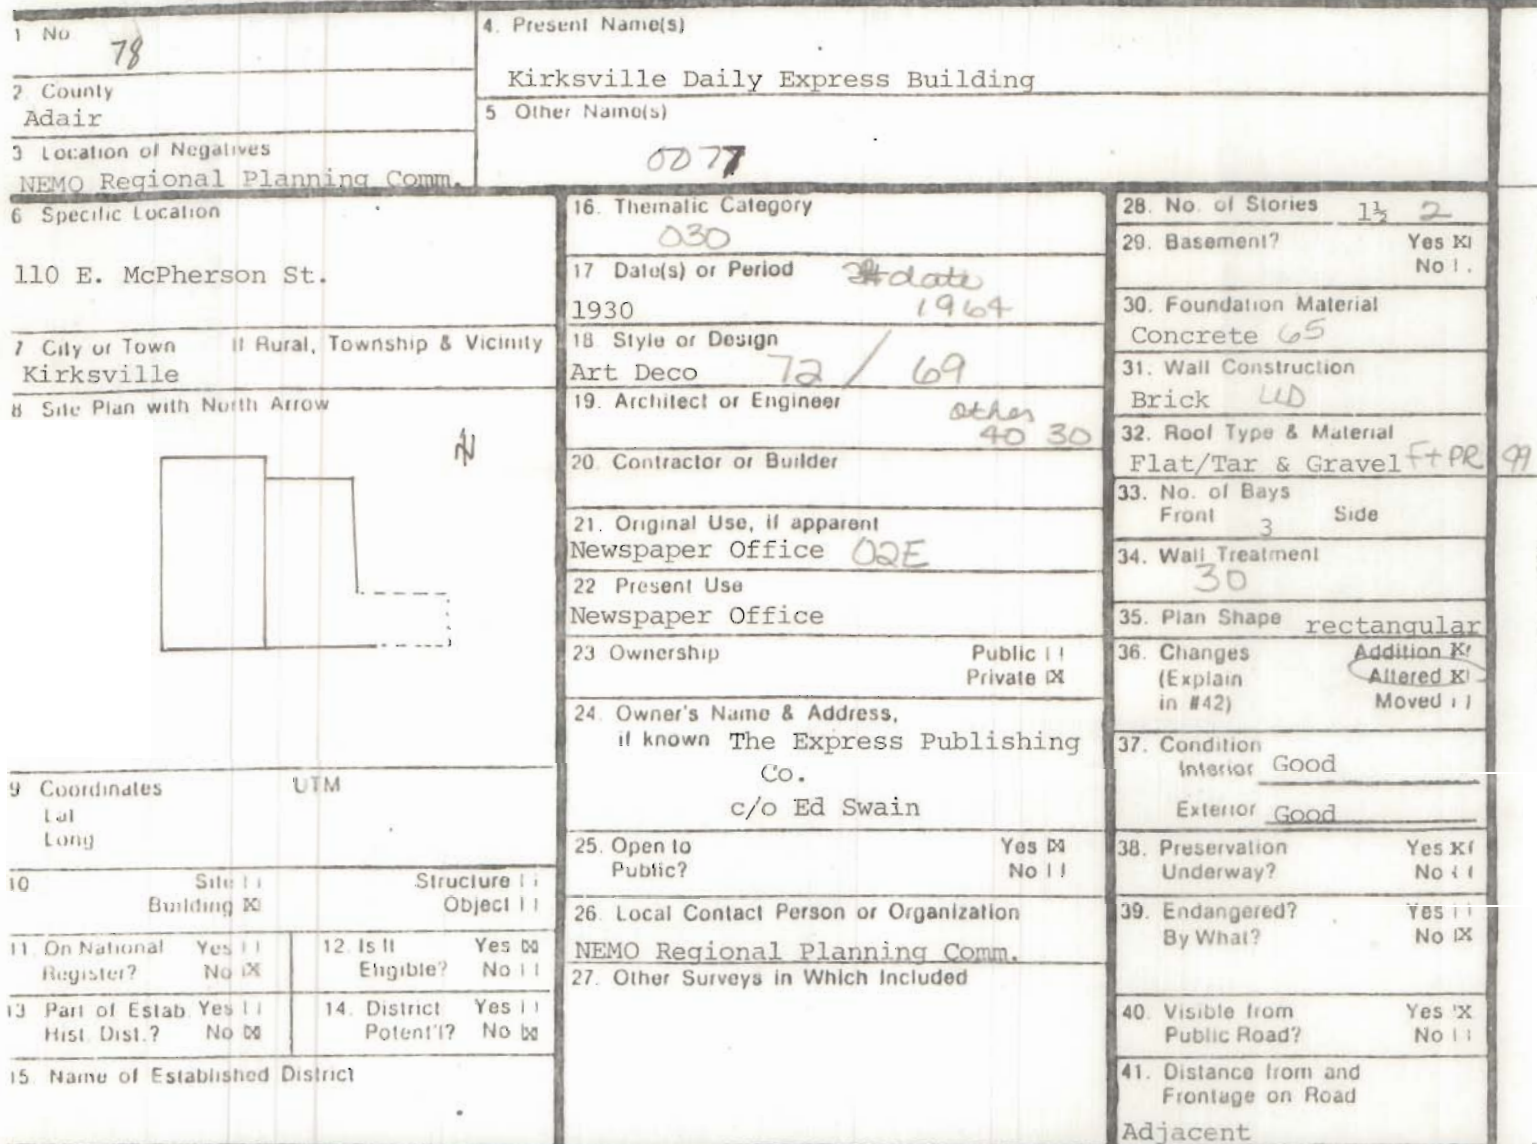 1 No
78
2 County
Adair
3 Location of Negatives
NEMO Regional Planning Comm.
4. Present Name(s)
Kirksville Daily Express Building
5 Other Name(s)
0077
6 Specific Location
110 E. McPherson St.
7 City or Town If Rural, Township & Vicinity
Kirksville
8 Site Plan with North Arrow
N
9 Coordinates UTM
Lat
Long
10 Site Structure
Building X Object
11 On National Yes
Register? No X
12. Is It Yes X
Eligible? No
13 Part of Estab Yes
Hist. Dist.? No X
14. District Yes
Potent'l? No X
15. Name of Established District
16. Thematic Category
030
17 Date(s) or Period
date
1930 1964
18 Style or Design
Art Deco 72 / 69
19. Architect or Engineer
other
40 30
20. Contractor or Builder
21. Original Use, if apparent
Newspaper Office 02E
22 Present Use
Newspaper Office
23 Ownership Public
Private X
24. Owner's Name & Address,
if known The Express Publishing
Co.
c/o Ed Swain
25. Open to Yes X
Public? No
26. Local Contact Person or Organization
NEMO Regional Planning Comm.
27. Other Surveys in Which Included
28. No. of Stories 1½ 2
29. Basement? Yes X
No
30. Foundation Material
Concrete 65
31. Wall Construction
Brick UD
32. Roof Type & Material
Flat/Tar & Gravel Ft PR 99
33. No. of Bays
Front 3 Side
34. Wall Treatment
30
35. Plan Shape rectangular
36. Changes Addition X
(Explain Altered X
in #42) Moved
37. Condition
Interior Good
Exterior Good
38. Preservation Yes X
Underway? No
39. Endangered? Yes
By What? No X
40. Visible from Yes X
Public Road? No
41. Distance from and
Frontage on Road
Adjacent